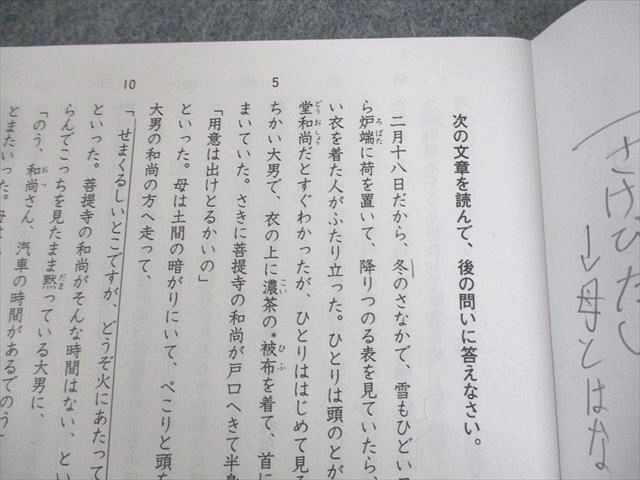 さけひたし
↓母とはな
次の文章を読んで、後の問いに答えなさい。
二月十八日だから、冬のさなかで、雪もひどい
ら炉端に荷を置いて、降りつのる表を見ていたら、
ろばた
い衣を着た人がふたり立った。ひとりは頭のとが
堂和尚だとすぐわかったが、ひとりははじめて見る
どうおしょう
5
ちかい大男で、衣の上に濃茶の*被布を着て、首に
こい
ひふ
まいていた。さきに菩提寺の和尚が戸口へきて半身
「用意は出けとるかいの」
といった。母は土間の暗がりにいて、ぺこりと頭を
大男の和尚の方へ走って、
10
「せまくるしいとこですが、どうぞ火にあたって
といった。菩提寺の和尚がそんな時間はない、とい
らんでこっちを見たまま黙っている大男に、
だま
「のう、和尚さん、汽車の時間があるでのう」
おっ
とまたいった。母は